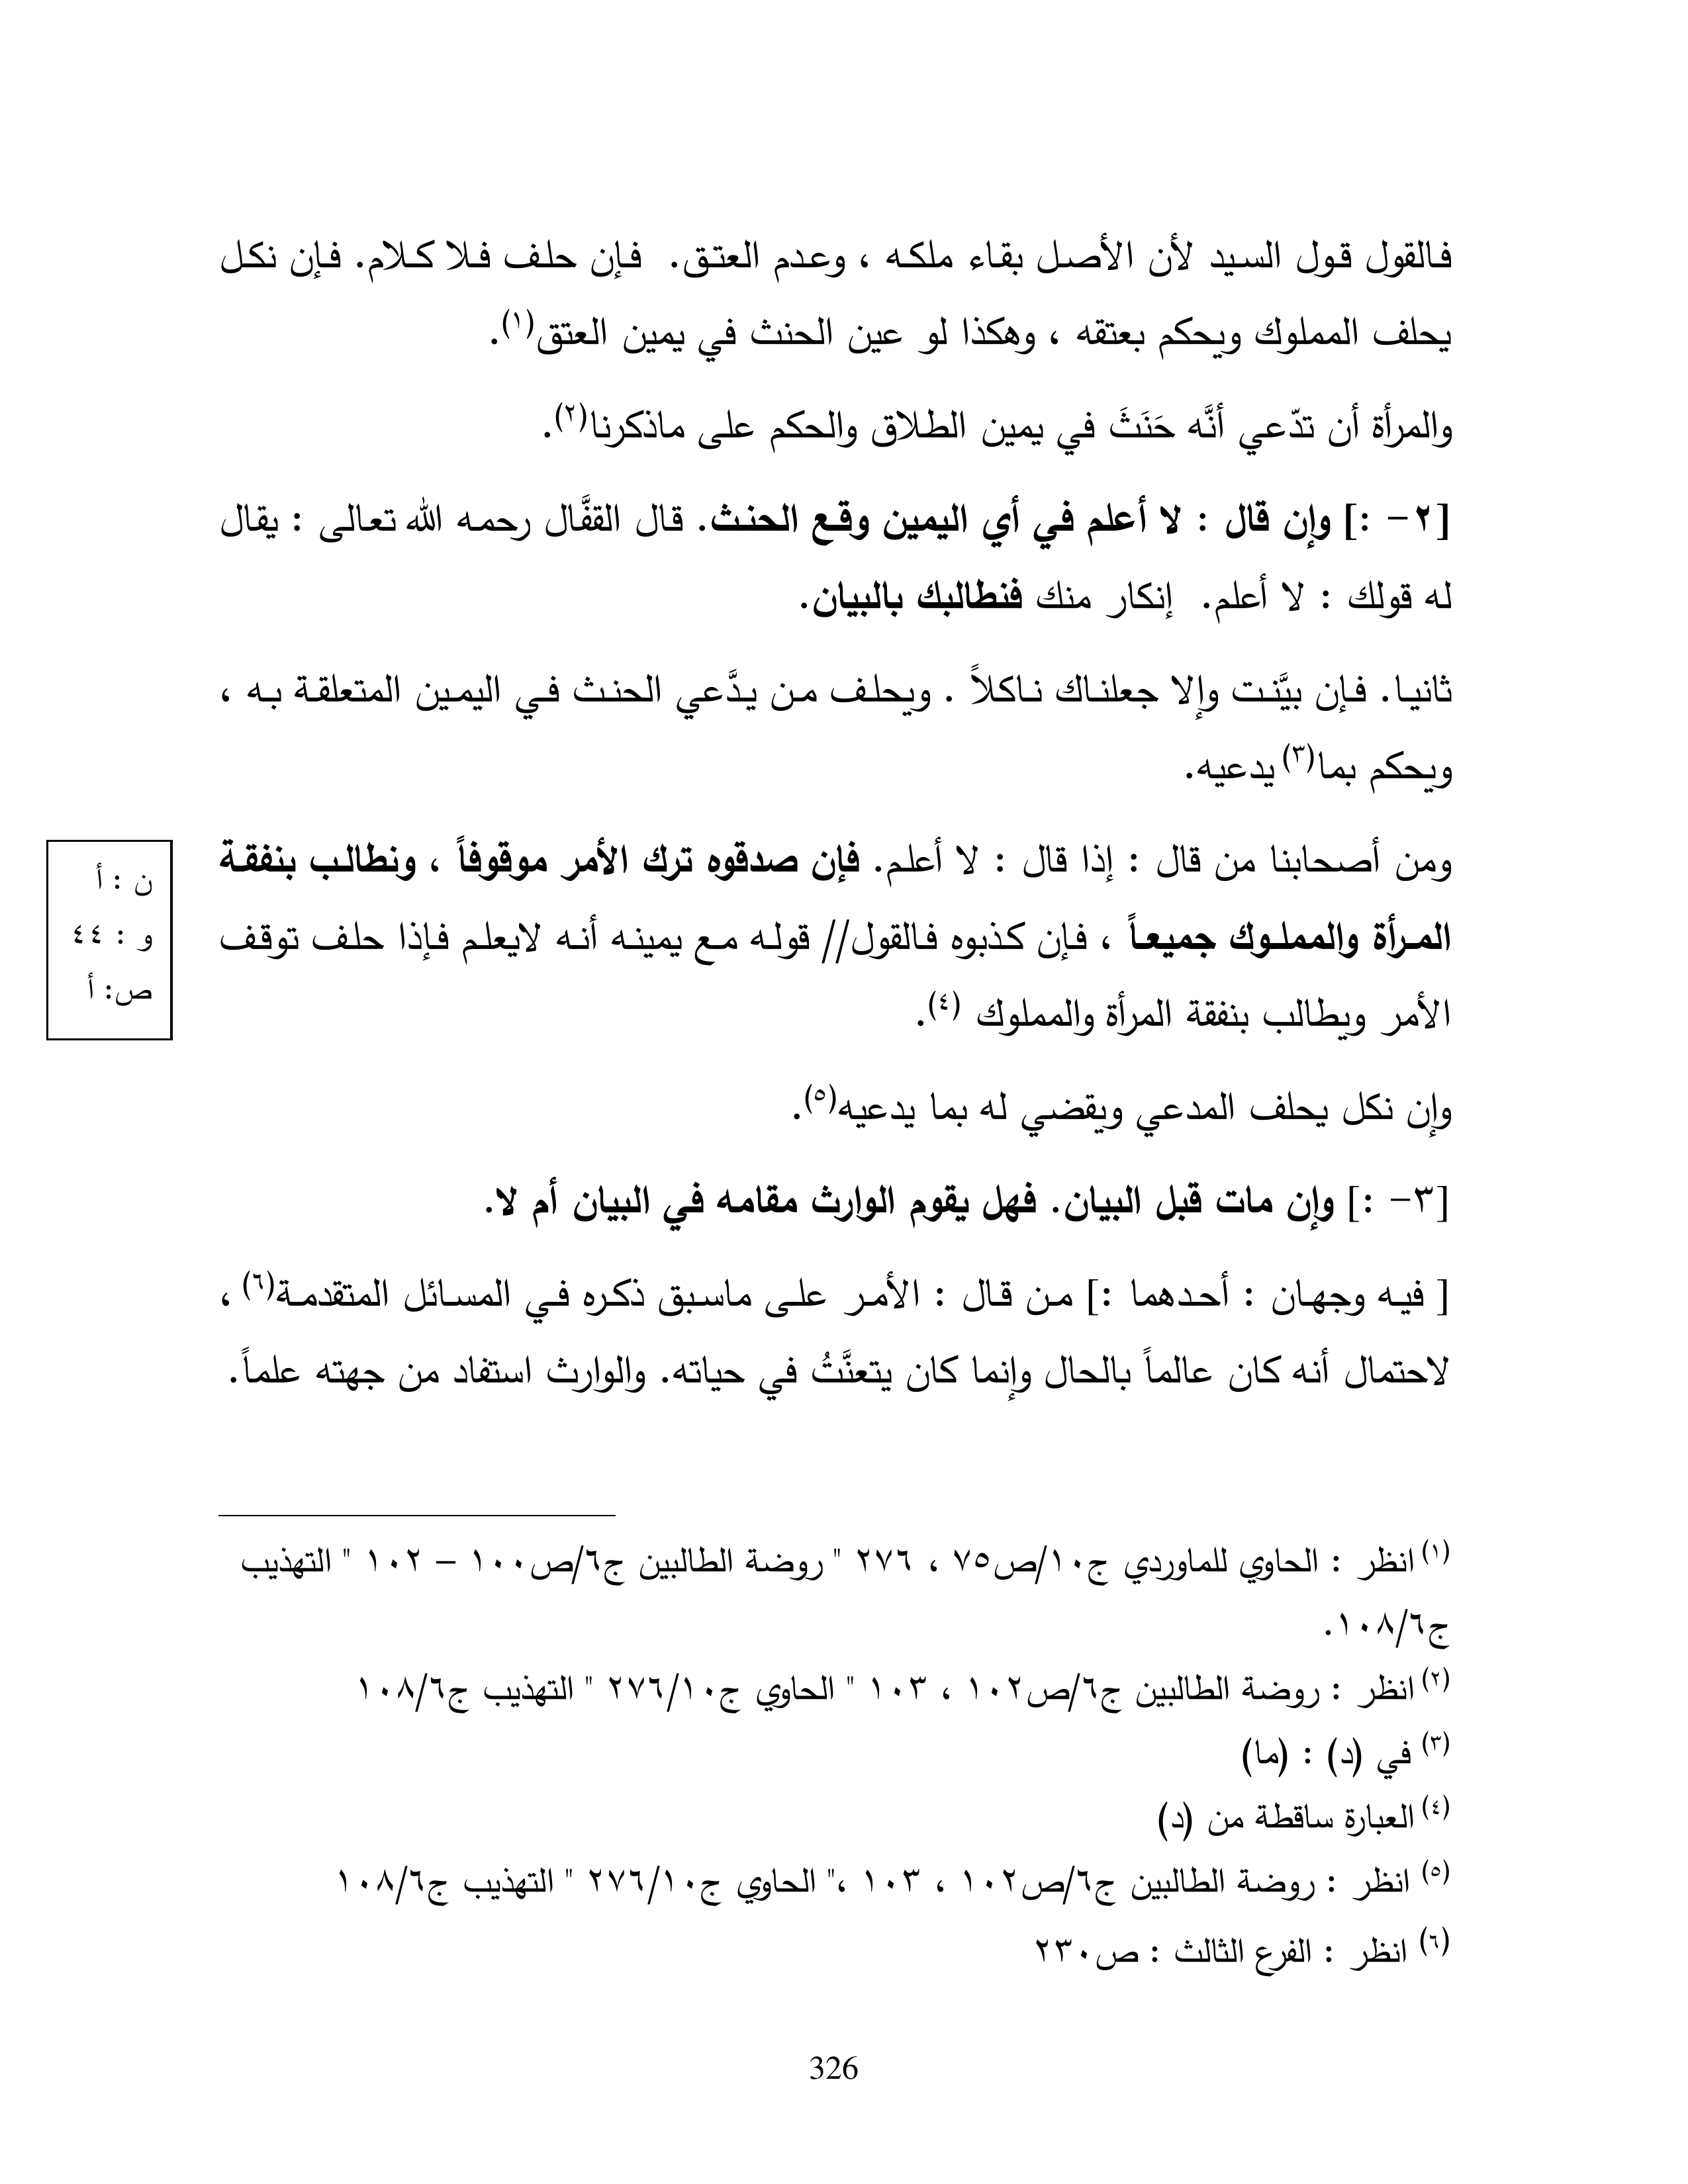 فالقول قول السيد لأن الأصل بقاء ملكه ، وعدم العتق. فإن حلف فلا كلام. فإن نكل
يحلف المملوك ويحكم بعتقه ، وهكذا لو عين الحنث في يمين العتق(١).
والمرأة أن تدّعي أنَّه حَنَثَ في يمين الطلاق والحكم على ماذكرنا(٢).
[٢- :] وإن قال : لا أعلم في أي اليمين وقع الحنث. قال القفَّال رحمه الله تعالى : يقال
له قولك : لا أعلم. إنكار منك فنطالبك بالبيان.
ثانيا. فإن بيَّنت وإلا جعلناك ناكلاً . ويحلف من يدَّعي الحنث في اليمين المتعلقة به ،
ويحكم بما(٣) يدعيه.
ومن أصحابنا من قال : إذا قال : لا أعلم. فإن صدقوه ترك الأمر موقوفاً ، ونطالب بنفقة
المرأة والمملوك جميعاً ، فإن كذبوه فالقول// قوله مع يمينه أنه لايعلم فإذا حلف توقف
الأمر ويطالب بنفقة المرأة والمملوك (٤).
ن : أ
و : ٤٤
ص: أ
وإن نكل يحلف المدعي ويقضي له بما يدعيه(٥).
[٣- :] وإن مات قبل البيان. فهل يقوم الوارث مقامه في البيان أم لا.
[ فيه وجهان : أحدهما :] من قال : الأمر على ماسبق ذكره في المسائل المتقدمة(٦) ،
لاحتمال أنه كان عالماً بالحال وإنما كان يتعنَّتُ في حياته. والوارث استفاد من جهته علماً.
(١) انظر : الحاوي للماوردي ج١٠/ص٧٥ ، ٢٧٦ " روضة الطالبين ج٦/ص١٠٠ – ١٠٢ " التهذيب
ج٦/١٠٨.
(٢) انظر : روضة الطالبين ج٦/ص١٠٢ ، ١٠٣ " الحاوي ج١٠/٢٧٦ " التهذيب ج٦/١٠٨
(٣) في (د) : (ما)
(٤) العبارة ساقطة من (د)
(٥) انظر : روضة الطالبين ج٦/ص١٠٢ ، ١٠٣ ،" الحاوي ج١٠/٢٧٦ " التهذيب ج٦/١٠٨
(٦) انظر : الفرع الثالث : ص٢٣٠
326